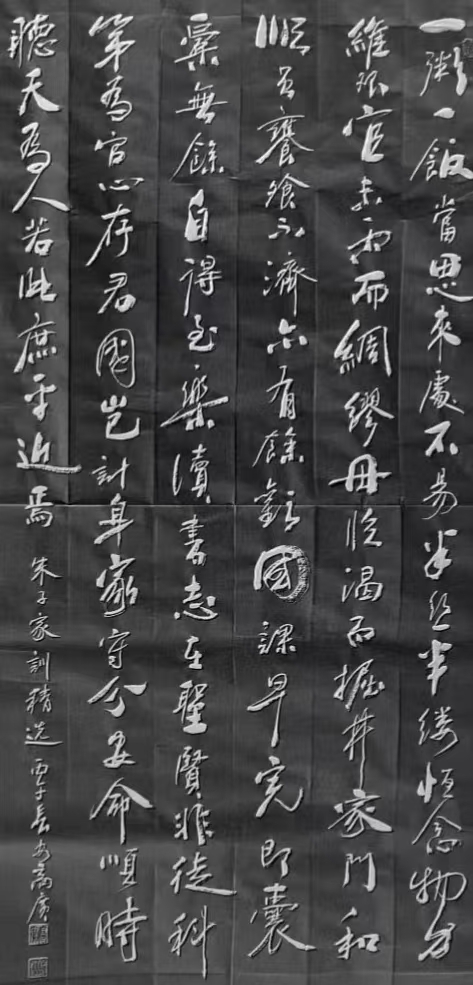 一粥一飯當思來處不易半絲半縷恒念物力
維艱宜未雨而綢繆毋臨渴而掘井家門和
順雖饔飧不濟亦有餘歡國課早完即囊
橐無餘自得至樂讀書志在聖賢非徒科
第為官心存君國豈計身家守分安命順時
聽天為人若此庶乎近焉 朱子家訓精選 丙子長安高廣